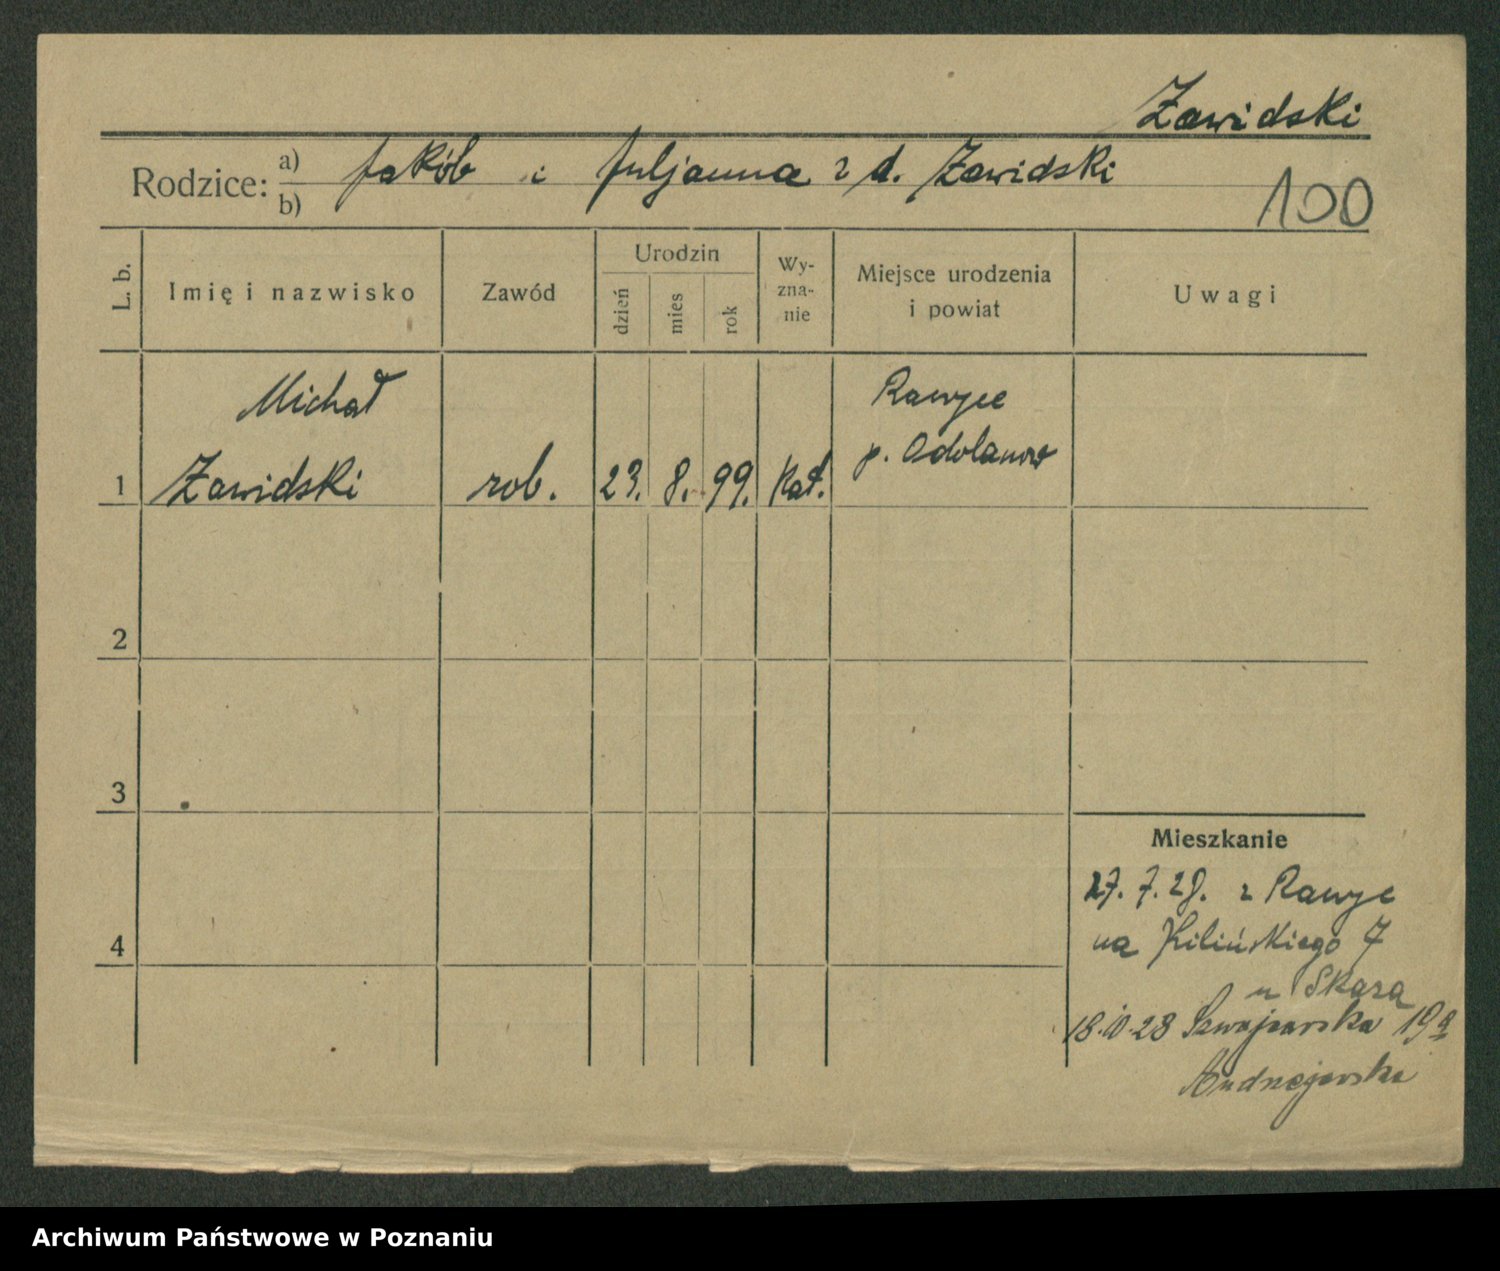 Zawidski
Rodzice: a) b) Jakób i Juljanna z d. Zawidski
100
L. b.
Imię i nazwisko
Zawód
Urodzin
dzień
mies
rok
Wy-
zna-
nie
Miejsce urodzenia
i powiat
Uwagi
Michał
Rawyce
p. Odolanow
1 Zawidski rob. 23. 8. 99. Kat.
2
3
4
Mieszkanie
27. 7. 28. z Rawyc
na Kilińskiego 7
u Skaza
18.10.28 Szwajcarska 19a
Andrzejewska
Archiwum Państwowe w Poznaniu